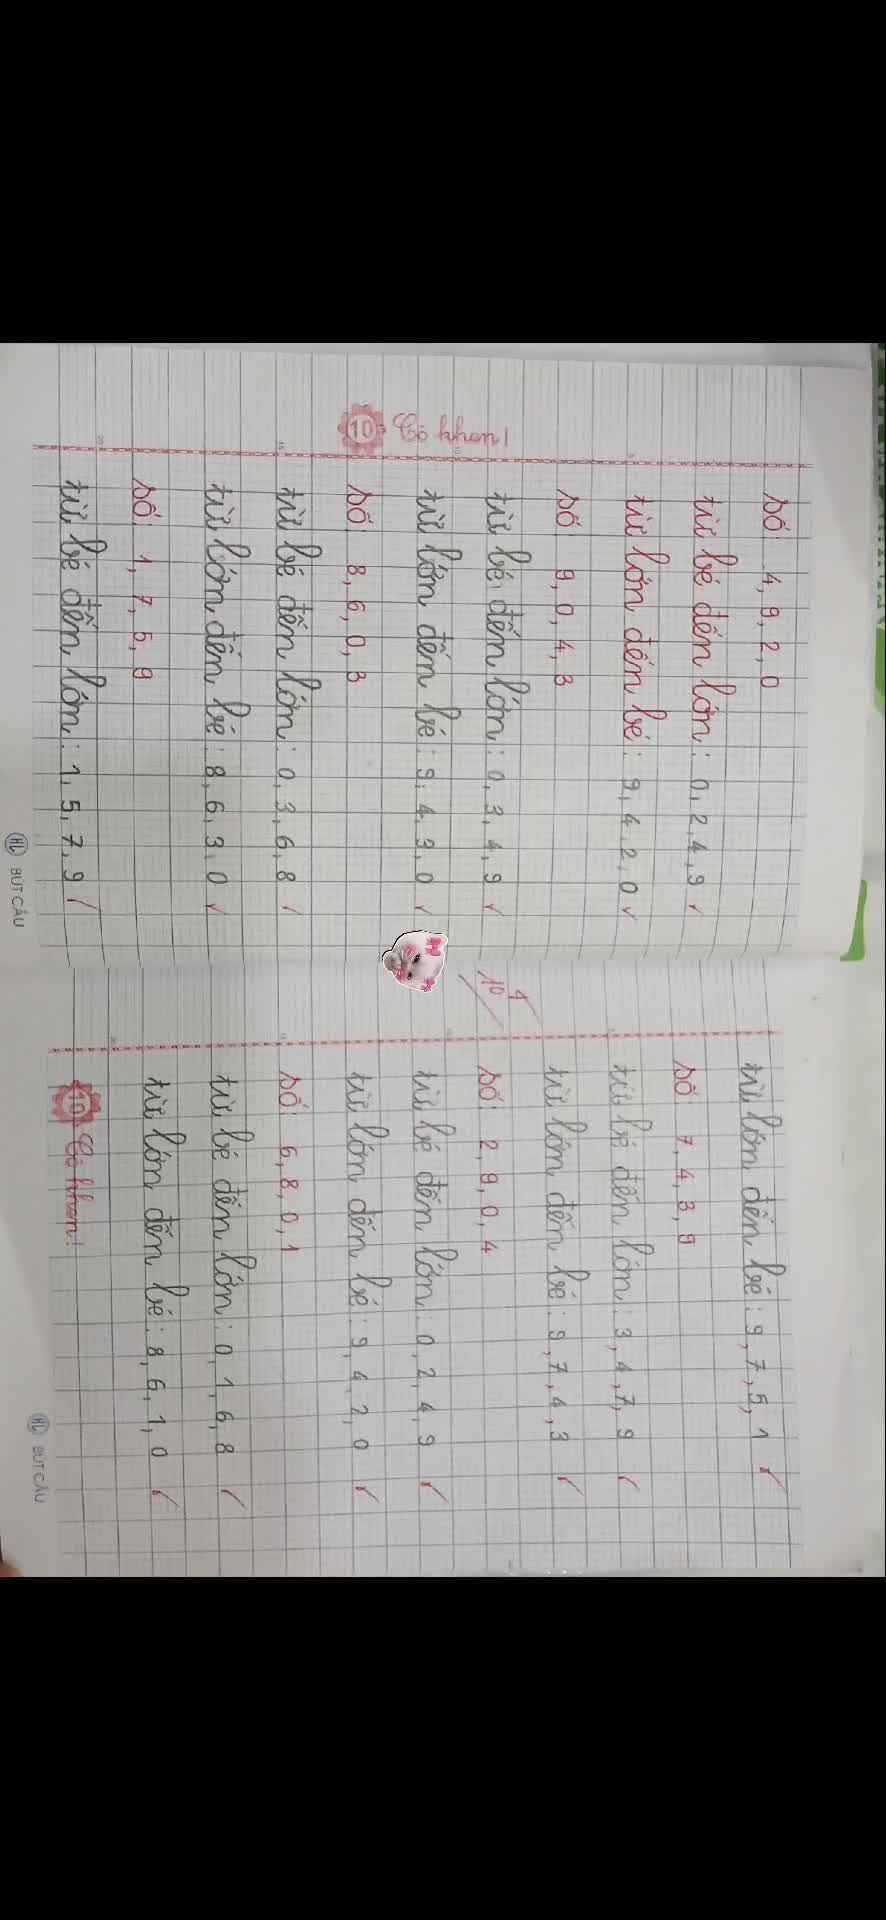 số 4, 9, 2, 0
từ bé đến lớn: 0, 2, 4, 9
từ lớn đến bé: 9, 4, 2, 0
số 9, 0, 4, 3
từ bé đến lớn: 0, 3, 4, 9
từ lớn đến bé: 9, 4, 3, 0
10 Cô khen!
số 8, 6, 0, 3
từ bé đến lớn: 0, 3, 6, 8
từ lớn đến bé: 8, 6, 3, 0
số 1, 7, 5, 9
từ bé đến lớn: 1, 5, 7, 9
HL BÚT CÂU
từ lớn đến bé: 9, 7, 5, 1
số 7, 4, 3, 9
từ bé đến lớn: 3, 4, 7, 9
từ lớn đến bé: 9, 7, 4, 3
1
10
số 2, 9, 0, 4
từ bé đến lớn: 0, 2, 4, 9
từ lớn đến bé: 9, 4, 2, 0
số 6, 8, 0, 1
từ bé đến lớn: 0, 1, 6, 8
từ lớn đến bé: 8, 6, 1, 0
10 Cô khen!
HL BÚT CÂU